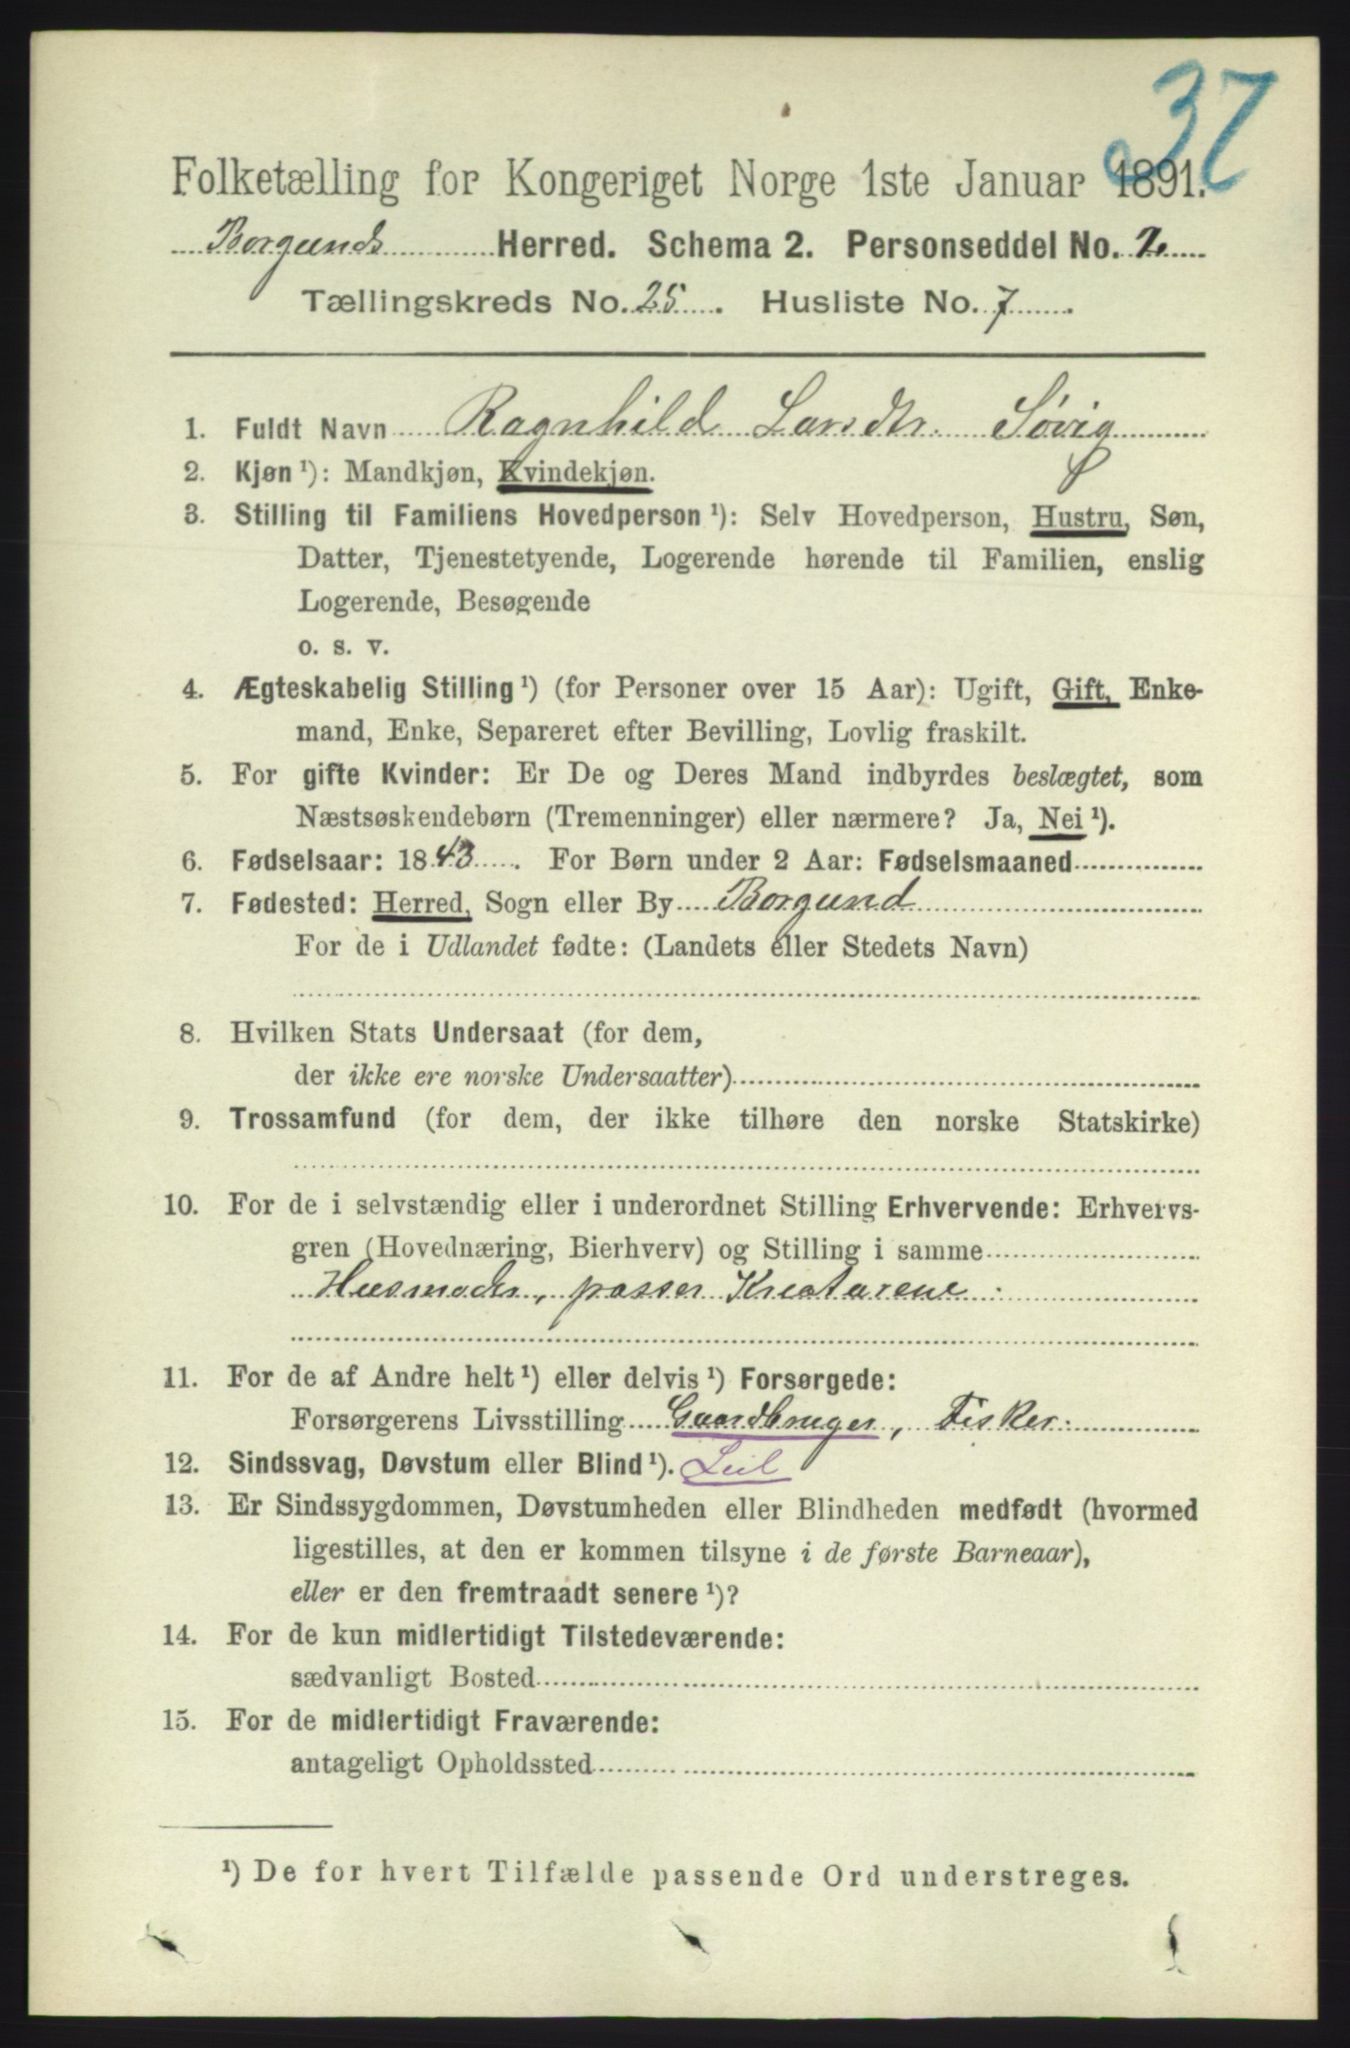 37
Folketælling for Kongeriget Norge 1ste Januar 1891.
Borgunds Herred. Schema 2. Personseddel No. 2
Tællingskreds No. 25. Husliste No. 7.
1. Fuldt Navn Ragnhild Larsdtr. Søvig
2. Kjøn ¹): Mandkjøn, Kvindekjøn.
3. Stilling til Familiens Hovedperson ¹): Selv Hovedperson, Hustru, Søn,
Datter, Tjenestetyende, Logerende hørende til Familien, enslig
Logerende, Besøgende
o. s. v.
4. Ægteskabelig Stilling ¹) (for Personer over 15 Aar): Ugift, Gift, Enke-
mand, Enke, Separeret efter Bevilling, Lovlig fraskilt.
5. For gifte Kvinder: Er De og Deres Mand indbyrdes beslægtet, som
Næstsøskendebørn (Tremenninger) eller nærmere? Ja, Nei ¹).
6. Fødselsaar: 1843. For Børn under 2 Aar: Fødselsmaaned
7. Fødested: Herred, Sogn eller By Borgund
For de i Udlandet fødte: (Landets eller Stedets Navn)
8. Hvilken Stats Undersaat (for dem,
der ikke ere norske Undersaatter)
9. Trossamfund (for dem, der ikke tilhøre den norske Statskirke)
10. For de i selvstændig eller i underordnet Stilling Erhvervende: Erhvervs-
gren (Hovednæring, Bierhverv) og Stilling i samme
Husmoder, passer Kreaturene.
11. For de af Andre helt ¹) eller delvis ¹) Forsørgede:
Forsørgerens Livsstilling Gaardbruger, Fisker.
12. Sindssvag, Døvstum eller Blind ¹). Leil
13. Er Sindssygdommen, Døvstumheden eller Blindheden medfødt (hvormed
ligestilles, at den er kommen tilsyne i de første Barneaar),
eller er den fremtraadt senere ¹)?
14. For de kun midlertidigt Tilstedeværende:
sædvanligt Bosted
15. For de midlertidigt Fraværende:
antageligt Opholdssted
¹) De for hvert Tilfælde passende Ord understreges.